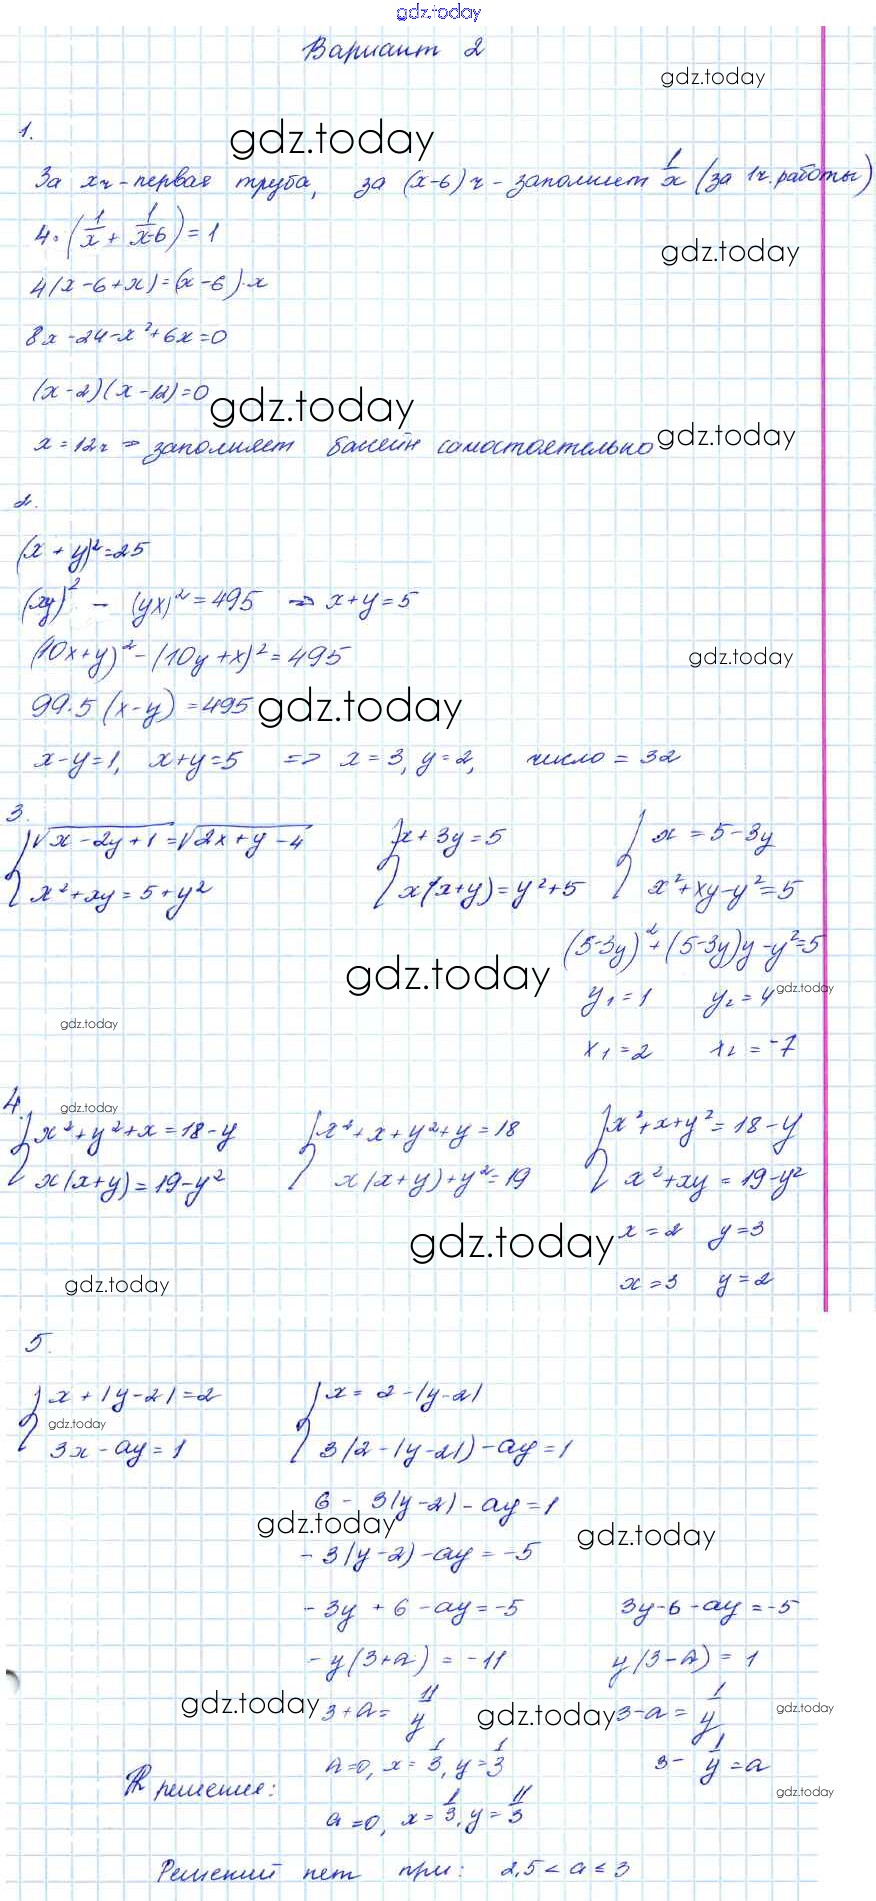 gdz.today
Вариант 2
gdz.today
1.
gdz.today
За x ч - первая труба, за (x-6) ч - заполняет 1/x (за 1ч. работы)
4·(1/x + 1/(x-6)) = 1
gdz.today
4(x-6+x)=(x-6)·x
8x-24-x²+6x=0
(x-2)(x-12)=0
gdz.today
x=12ч ⇒ заполняет басейн самостоятельно
gdz.today
2.
(x+y)²=25
(xy)² - (yx)² = 495 ⇒ x+y=5
(10x+y)²-(10y+x)²=495
gdz.today
99·5(x-y)=495
gdz.today
x-y=1, x+y=5 ⇒ x=3, y=2, число = 32
3.
{ √(x-2y+1) = √(2x+y-4) { x+3y=5 { x = 5-3y
x²+xy=5+y² x(x+y)=y²+5 x²+xy-y²=5
(5-3y)²+(5-3y)y-y²=5
gdz.today
y₁=1 y₂=4
gdz.today
gdz.today
x₁=2 x₂=-7
4.
gdz.today
{ x²+y²+x=18-y { x²+x+y²+y=18 { x²+x+y²=18-y
x(x+y)=19-y² x(x+y)+y²=19 x²+xy=19-y²
gdz.today
x=2 y=3
gdz.today
x=3 y=2
5.
{ x+|y-2|=2 { x=2-|y-2|
gdz.today
3x-ay=1 3(2-|y-2|)-ay=1
6-3(y-2)-ay=1
gdz.today
gdz.today
-3(y-2)-ay=-5
-3y+6-ay=-5 3y-6-ay=-5
-y(3+a)=-11 y(3-a)=1
gdz.today
3+a=11/y
gdz.today
3-a=1/y
gdz.today
a=0, x=1/3, y=1/3 3-1/y=a
решение:
gdz.today
a=0, x=1/3, y=11/3
Решений нет при: 2,5<a≤3